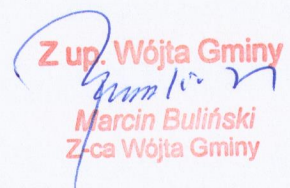 Z up. Wójta Gminy
Marcin Buliński
Z-ca Wójta Gminy